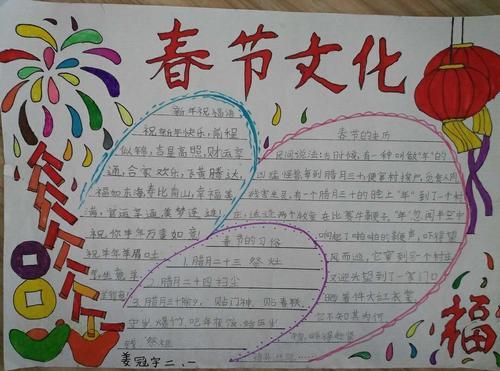 春节文化
新年祝福语
祝新年快乐,前程
似锦,吉星高照,财运亨
通,合家欢乐,飞黄腾达,
福如东海,寿比南山,幸福美
满,官运亨通,美梦连连!
祝你牛年万事如意!
祝牛年
春节的来历
民间说法:古时候,有一种叫做"年"的
有一个腊月三十的晚上"年"到了一个村
两个牧童在比赛牛鞭子,"年"忽闻半空中
响起了啪啪的鞭声,吓得望
风而逃,它窜到另一个村庄
又迎头望到了一家门口
晒着件大红衣裳,
它不知其为何
春节的习俗
1.腊月二十三 祭灶
2.腊月二十四扫尘
3.腊月三十除夕,贴门神,贴春联,
守岁,爆竹,吃年夜饭,给压岁
钱,祭祖
福
姜冠宇二、一